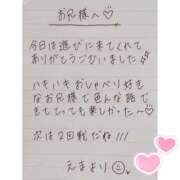 お兄様へ♡
今日は遊びに来てくれて
ありがとうございました
ハキハキおしゃべり好き
なお兄様で色んな話で
きてとっても楽しかった〜♡
次は2回戦だね!!!
えまより